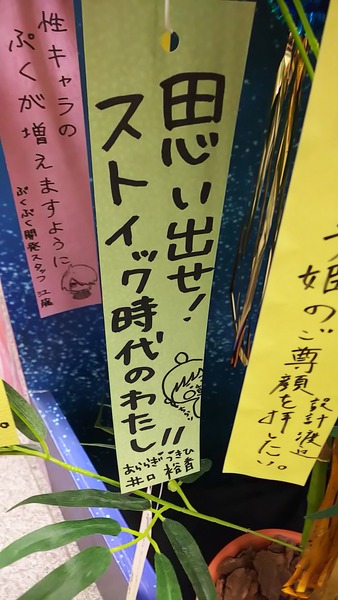 思い出せ!
ストイック時代のわたし!!
あららぎ つきひ
井口 裕香
性キャラの
ぷくが増えますように
ぷくぷく開発スタッフ
姫のご尊顔を拝したい。